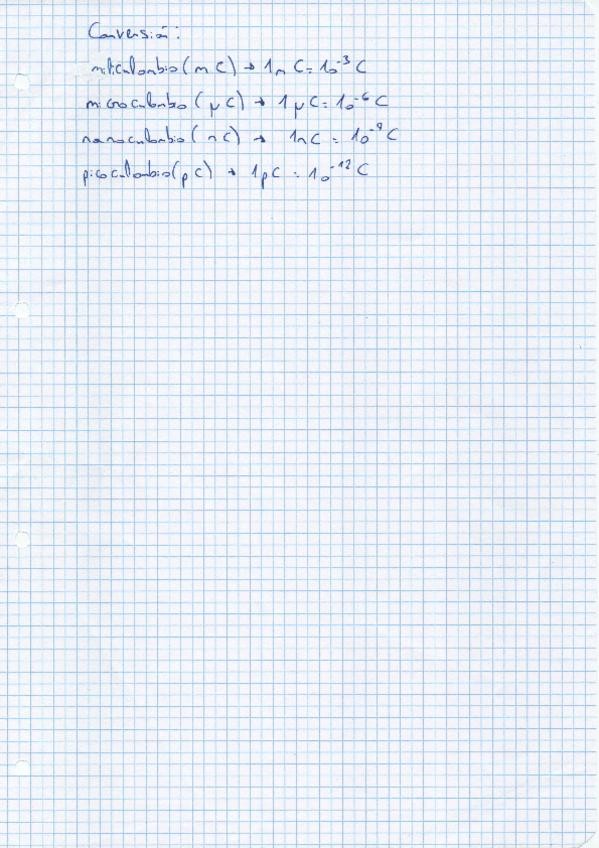 Conversión:
miliculombio (mC) → 1mC = 10⁻³ C
microculombio (μC) → 1μC = 10⁻⁶ C
nanoculombio (nC) → 1nC = 10⁻⁹ C
picoculombio (pC) → 1pC = 10⁻¹² C